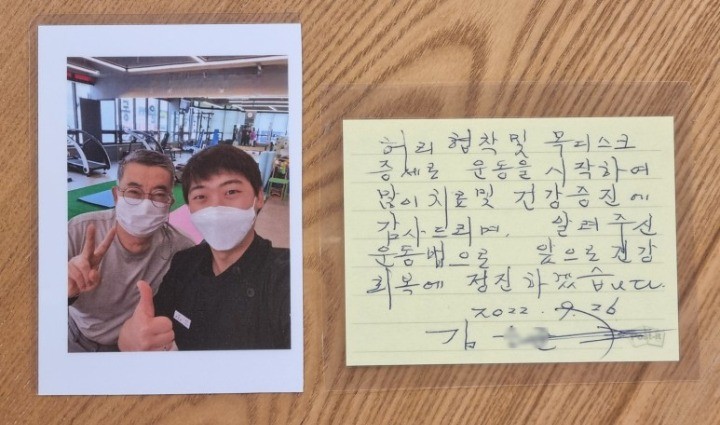 허리 협착및 목디스크
증세로 운동을 시작하여
많이 치료및 건강증진에
감사드리며, 알려주신
운동법으로 앞으로 건강
회복에 정진하겠습니다.
2022. 9. 26
김